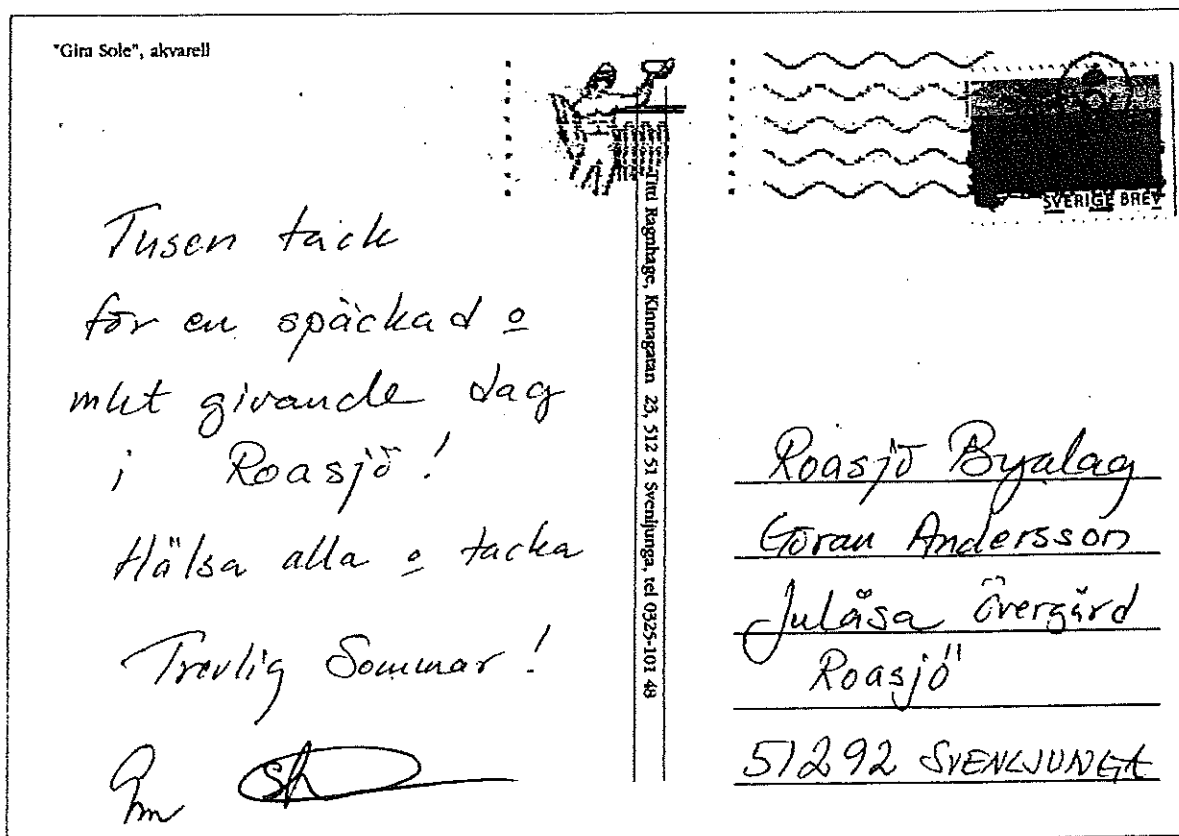 "Gira Sole", akvarell
Tusen tack
för en späckad o
mkt givande dag
i Roasjö!
Hälsa alla o tacka
Trevlig Sommar!
Titti Ragnhage, Kinnagatan 23, 512 51 Svenljunga, tel 0325-101 48
SVERIGE BREV
Roasjö Byalag
Göran Andersson
Julåsa Övergård
Roasjö
51292 SVENLJUNGA